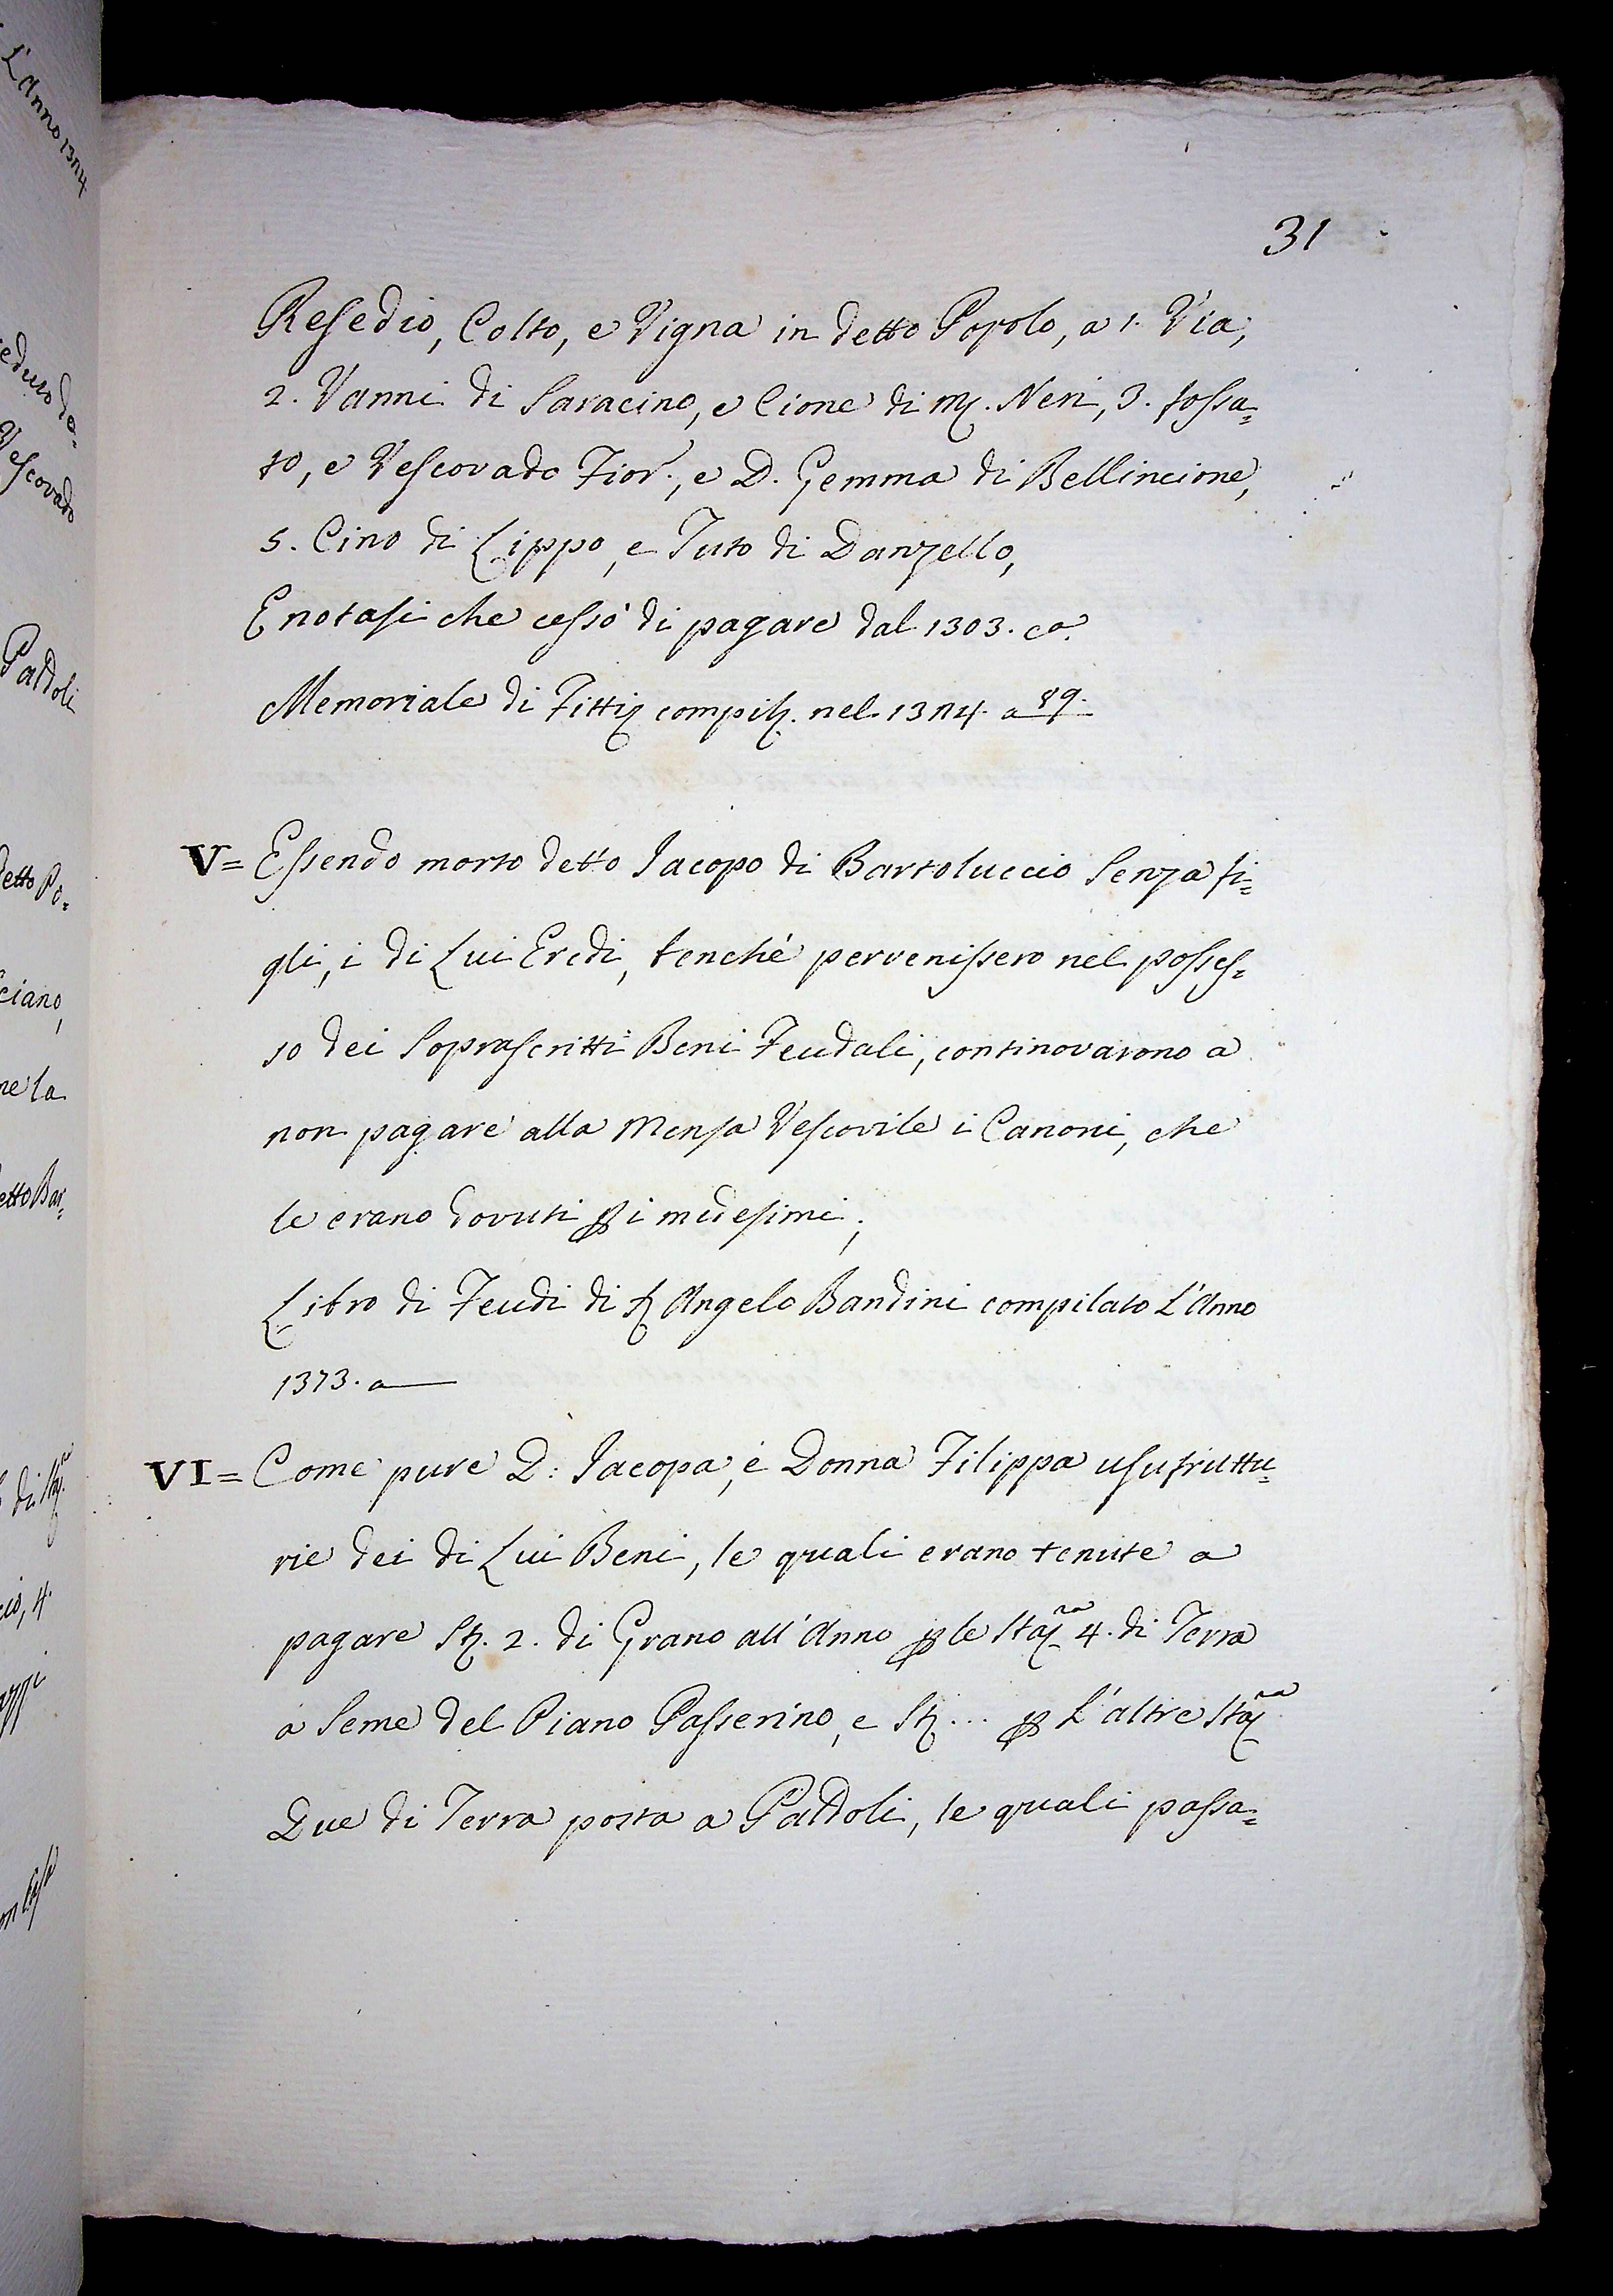 31
Resedio, Colto, e Vigna in detto Popolo, a 1. Via,
2. Vanni di Saracino, e Cione di M. Neri, 3. fossa=
to, e Vescovado Fior., e D. Gemma di Bellincione,
5. Cino di Lippo, e Tuto di Danzello,
E notasi che cessò di pagare dal 1303. ca.
Memoriale di Fitti compil. nel 1374. a 89.
V= Essendo morto detto Jacopo di Bartoluccio Senza fi=
gli, i di Lui Eredi, benchè pervenissero nel posses=
so dei Soprascritti Beni Feudali, continovarono a
non pagare alla Mensa Vescovile i Canoni, che
le erano dovuti p i medesimi;
Libro di Feudi di S. Angelo Bandini compilato L'Anno
1373. a
VI= Come pure D: Jacopa, e Donna Filippa usufruttu=
rie dei di Lui Beni, le quali erano tenute a
pagare St. 2. di Grano all'Anno p le Sta.ra 4. di Terra
a Seme del Piano Passerino, e St... p L'altre Sta.ra
Due di Terra posta a Pattoli, le quali passa=
L'Anno 1374
Vescovado
Pattoli
detto Po=
ciano,
ne la
etto Bar=
cio, 4.